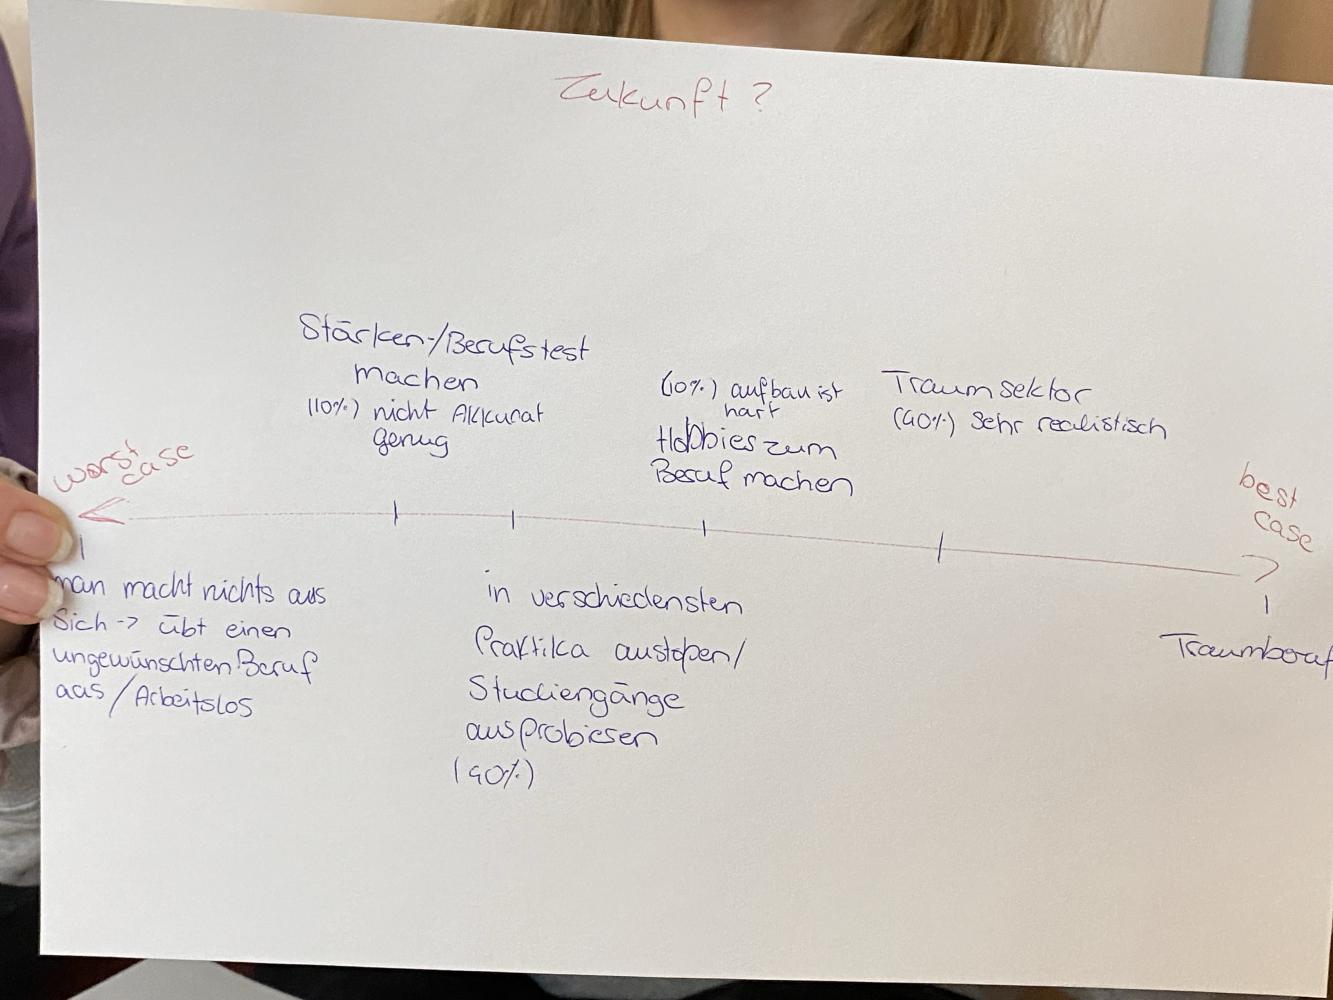 Zukunft?
Stärken-/Berufstest
machen
(10%) nicht Akkurat
genug
(10%) aufbau ist
hart
Hobbies zum
Beruf machen
Traumsektor
(40%) Sehr realistisch
worst
case
best
case
man macht nichts aus
Sich -> übt einen
ungewünschten Beruf
aus/Arbeitslos
in verschiedensten
Praktika austopen/
Studiengänge
ausprobieren
(40%)
Traumberuf